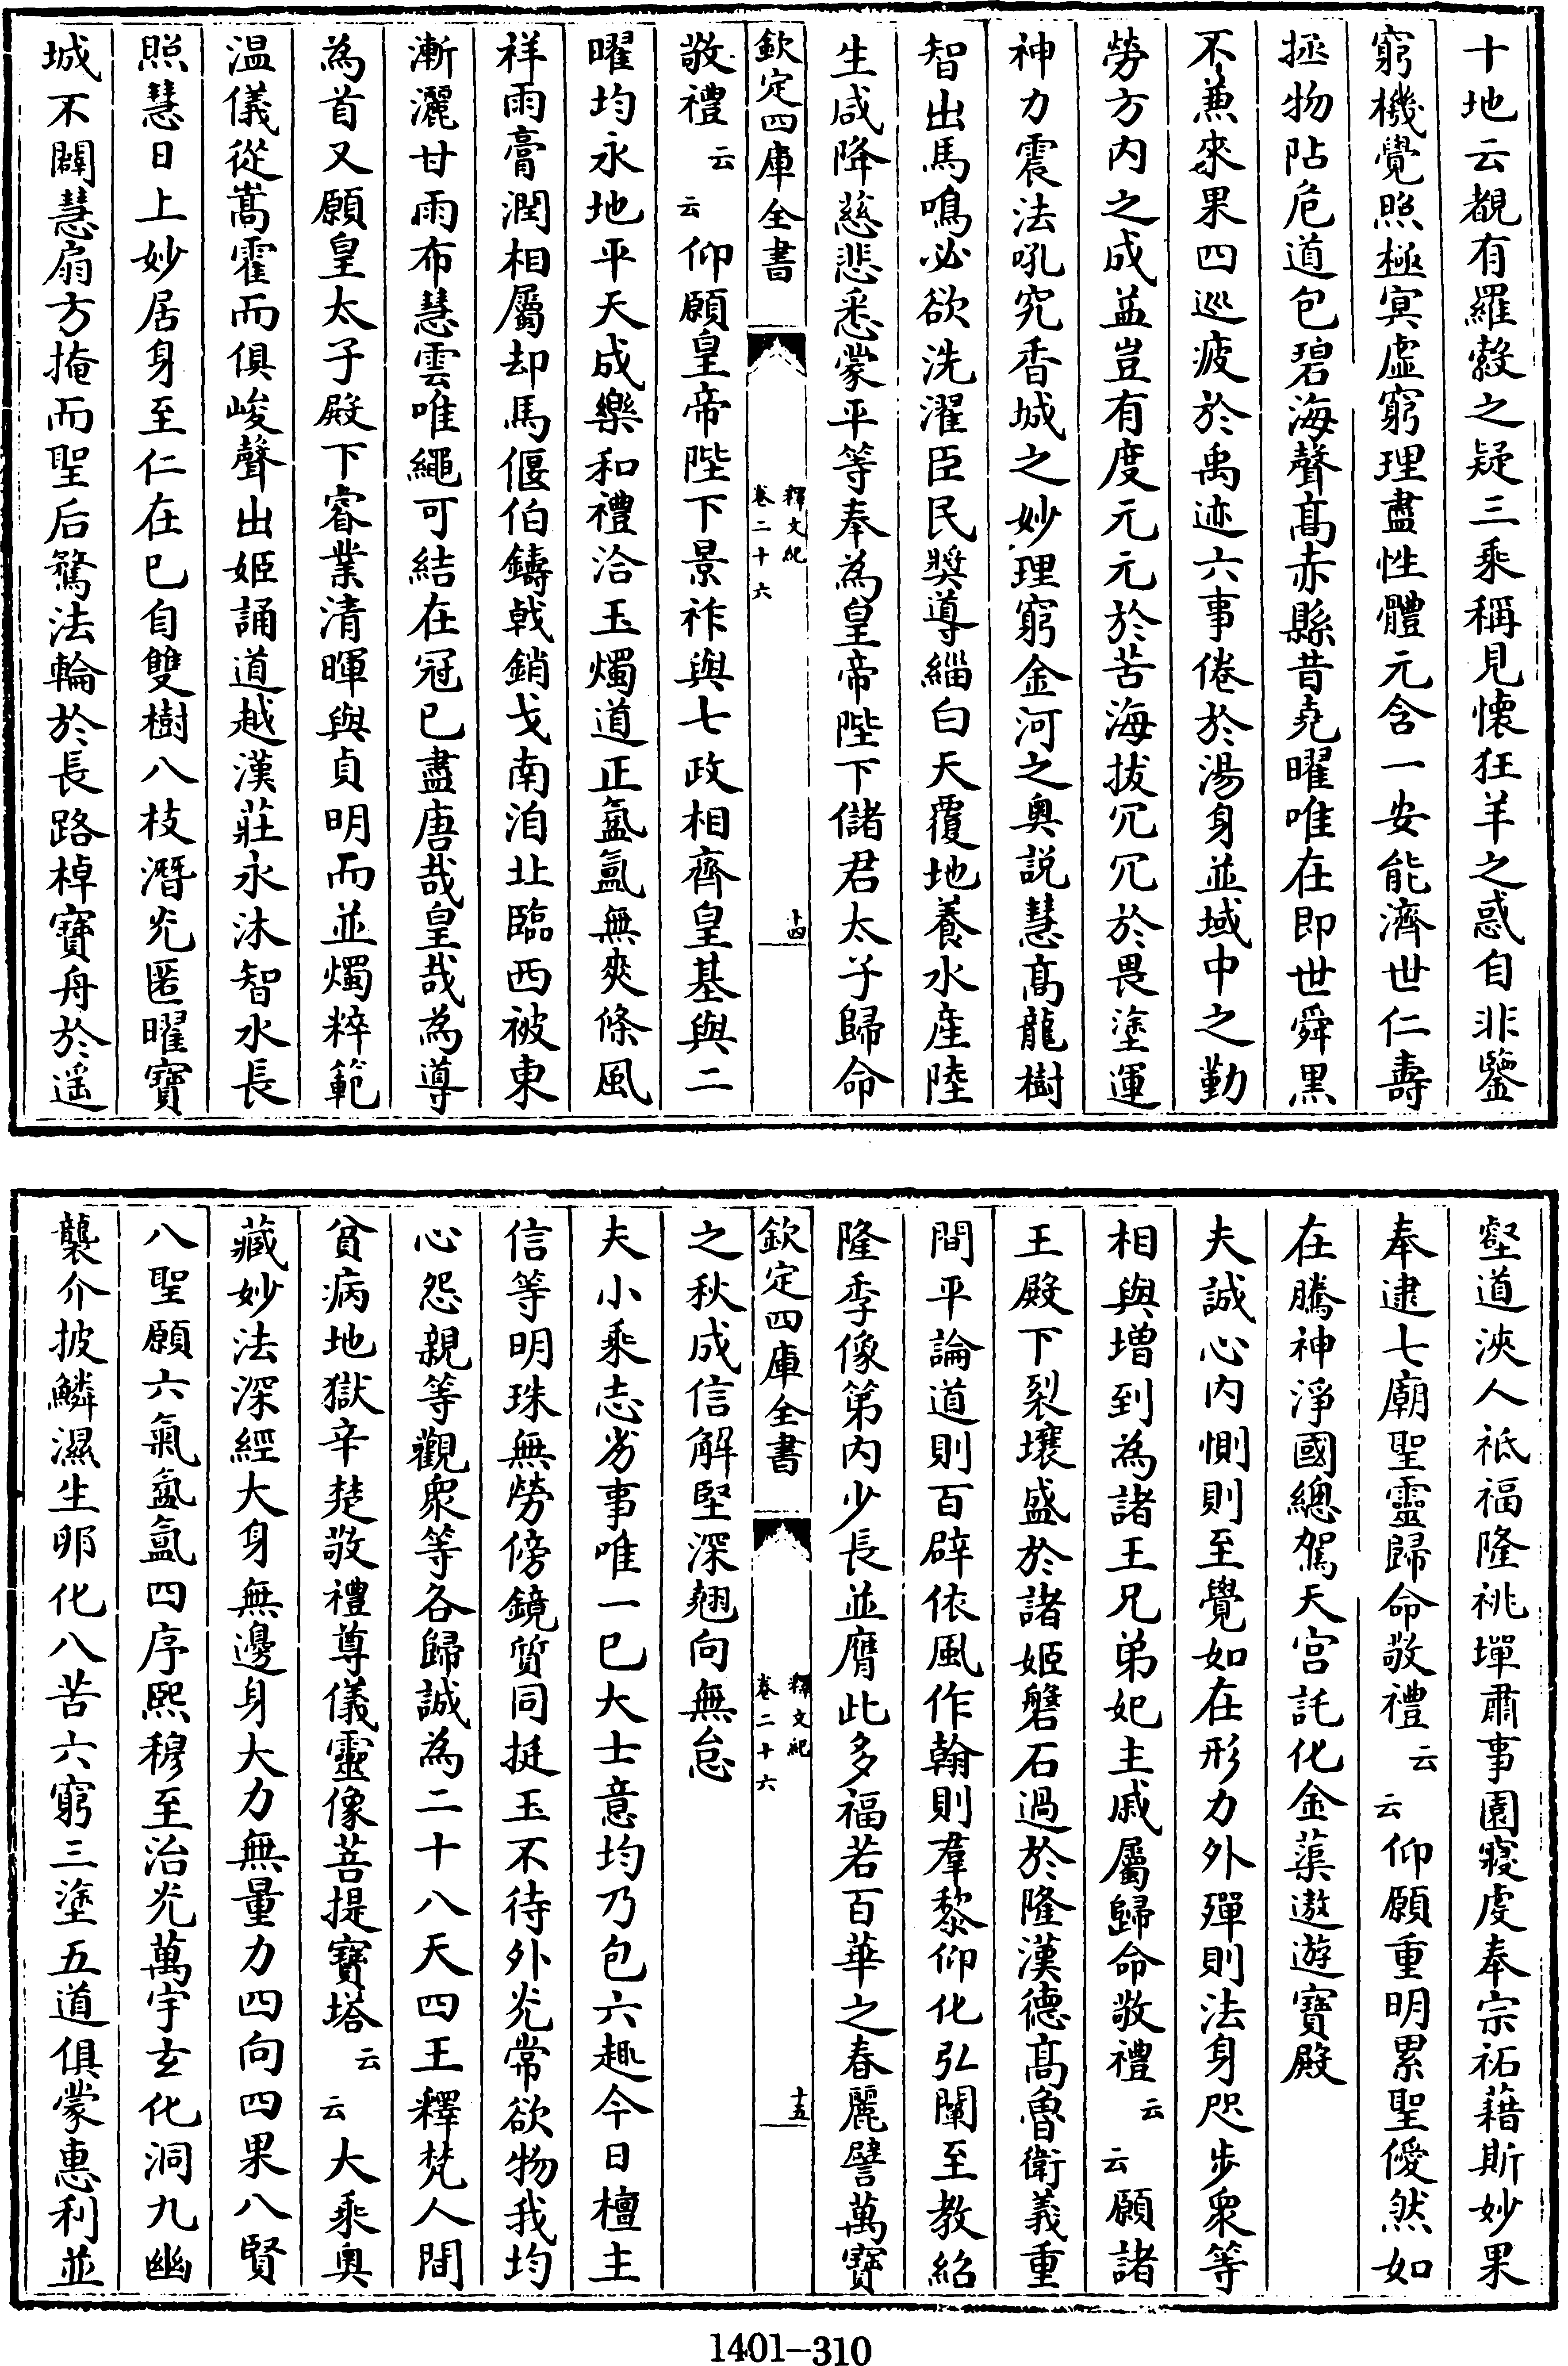 十地云覩有羅縠之疑三乘稱見懷狂羊之惑自非鑒
窮機覺照極冥虛窮理盡性體元含一安能濟世仁壽
拯物阽危道包碧海聲髙赤縣昔堯曜唯在即世舜黑
不兼來果四巡疲於禹迹六事倦於湯身並域中之勤
勞方内之成益豈有度元元於苦海拔冗冗於畏塗運
神力震法吼究香城之妙理窮金河之奥説慧髙龍樹
智出馬鳴必欲洗濯臣民奬導緇白天覆地養水産陸
生咸降慈悲悉蒙平等奉為皇帝陛下儲君太子歸命
欽定四庫全書
釋文紀
卷二十六
十四
敬禮云云仰願皇帝陛下景祚與七政相齊皇基與二
曜均永地平天成樂和禮洽玉燭道正氤氲無爽條風
祥雨膏潤相屬却馬偃伯鑄戟銷戈南洎北臨西被東
漸灑甘雨布慧雲唯繩可結在冠已盡唐哉皇哉為導
為首又願皇太子殿下睿業清暉與貞明而並燭粹範
温儀從嵩霍而俱峻聲出姬誦道越漢莊永沐智水長
照慧日上妙居身至仁在已自雙樹八枝潛光匿曜寶
城不闢慧扇方掩而聖后騖法輪於長路棹寶舟於遥
壑道浹人祇福隆祧墠肅事園寢虔奉宗祏藉斯妙果
奉逮七廟聖靈歸命敬禮云云仰願重明累聖僾然如
在騰神淨國總駕天宫託化金蕖遨遊寶殿
夫誠心内惻則至覺如在形力外殫則法身咫步衆等
相與増到為諸王兄弟妃主戚屬歸命敬禮云云願諸
王殿下裂壤盛於諸姬磐石過於隆漢德髙魯衛義重
間平論道則百辟依風作翰則羣黎仰化弘闡至教紹
隆季像第内少長並膺此多福若百華之春麗譬萬寶
欽定四庫全書
釋文紀
卷二十六
十五
之秋成信解堅深翹向無怠
夫小乘志劣事唯一已大士意均乃包六趣今日檀主
信等明珠無勞傍鏡質同挺玉不待外光常欲物我均
心怨親等觀衆等各歸誠為二十八天四王釋梵人間
貧病地獄辛楚敬禮尊儀靈像菩提寶塔云云大乘奥
藏妙法深經大身無邊身大力無量力四向四果八賢
八聖願六氣氤氲四序熙穆至治光萬宇玄化洞九幽
襲介披鱗濕生卵化八苦六窮三塗五道俱蒙惠利並
1401—310